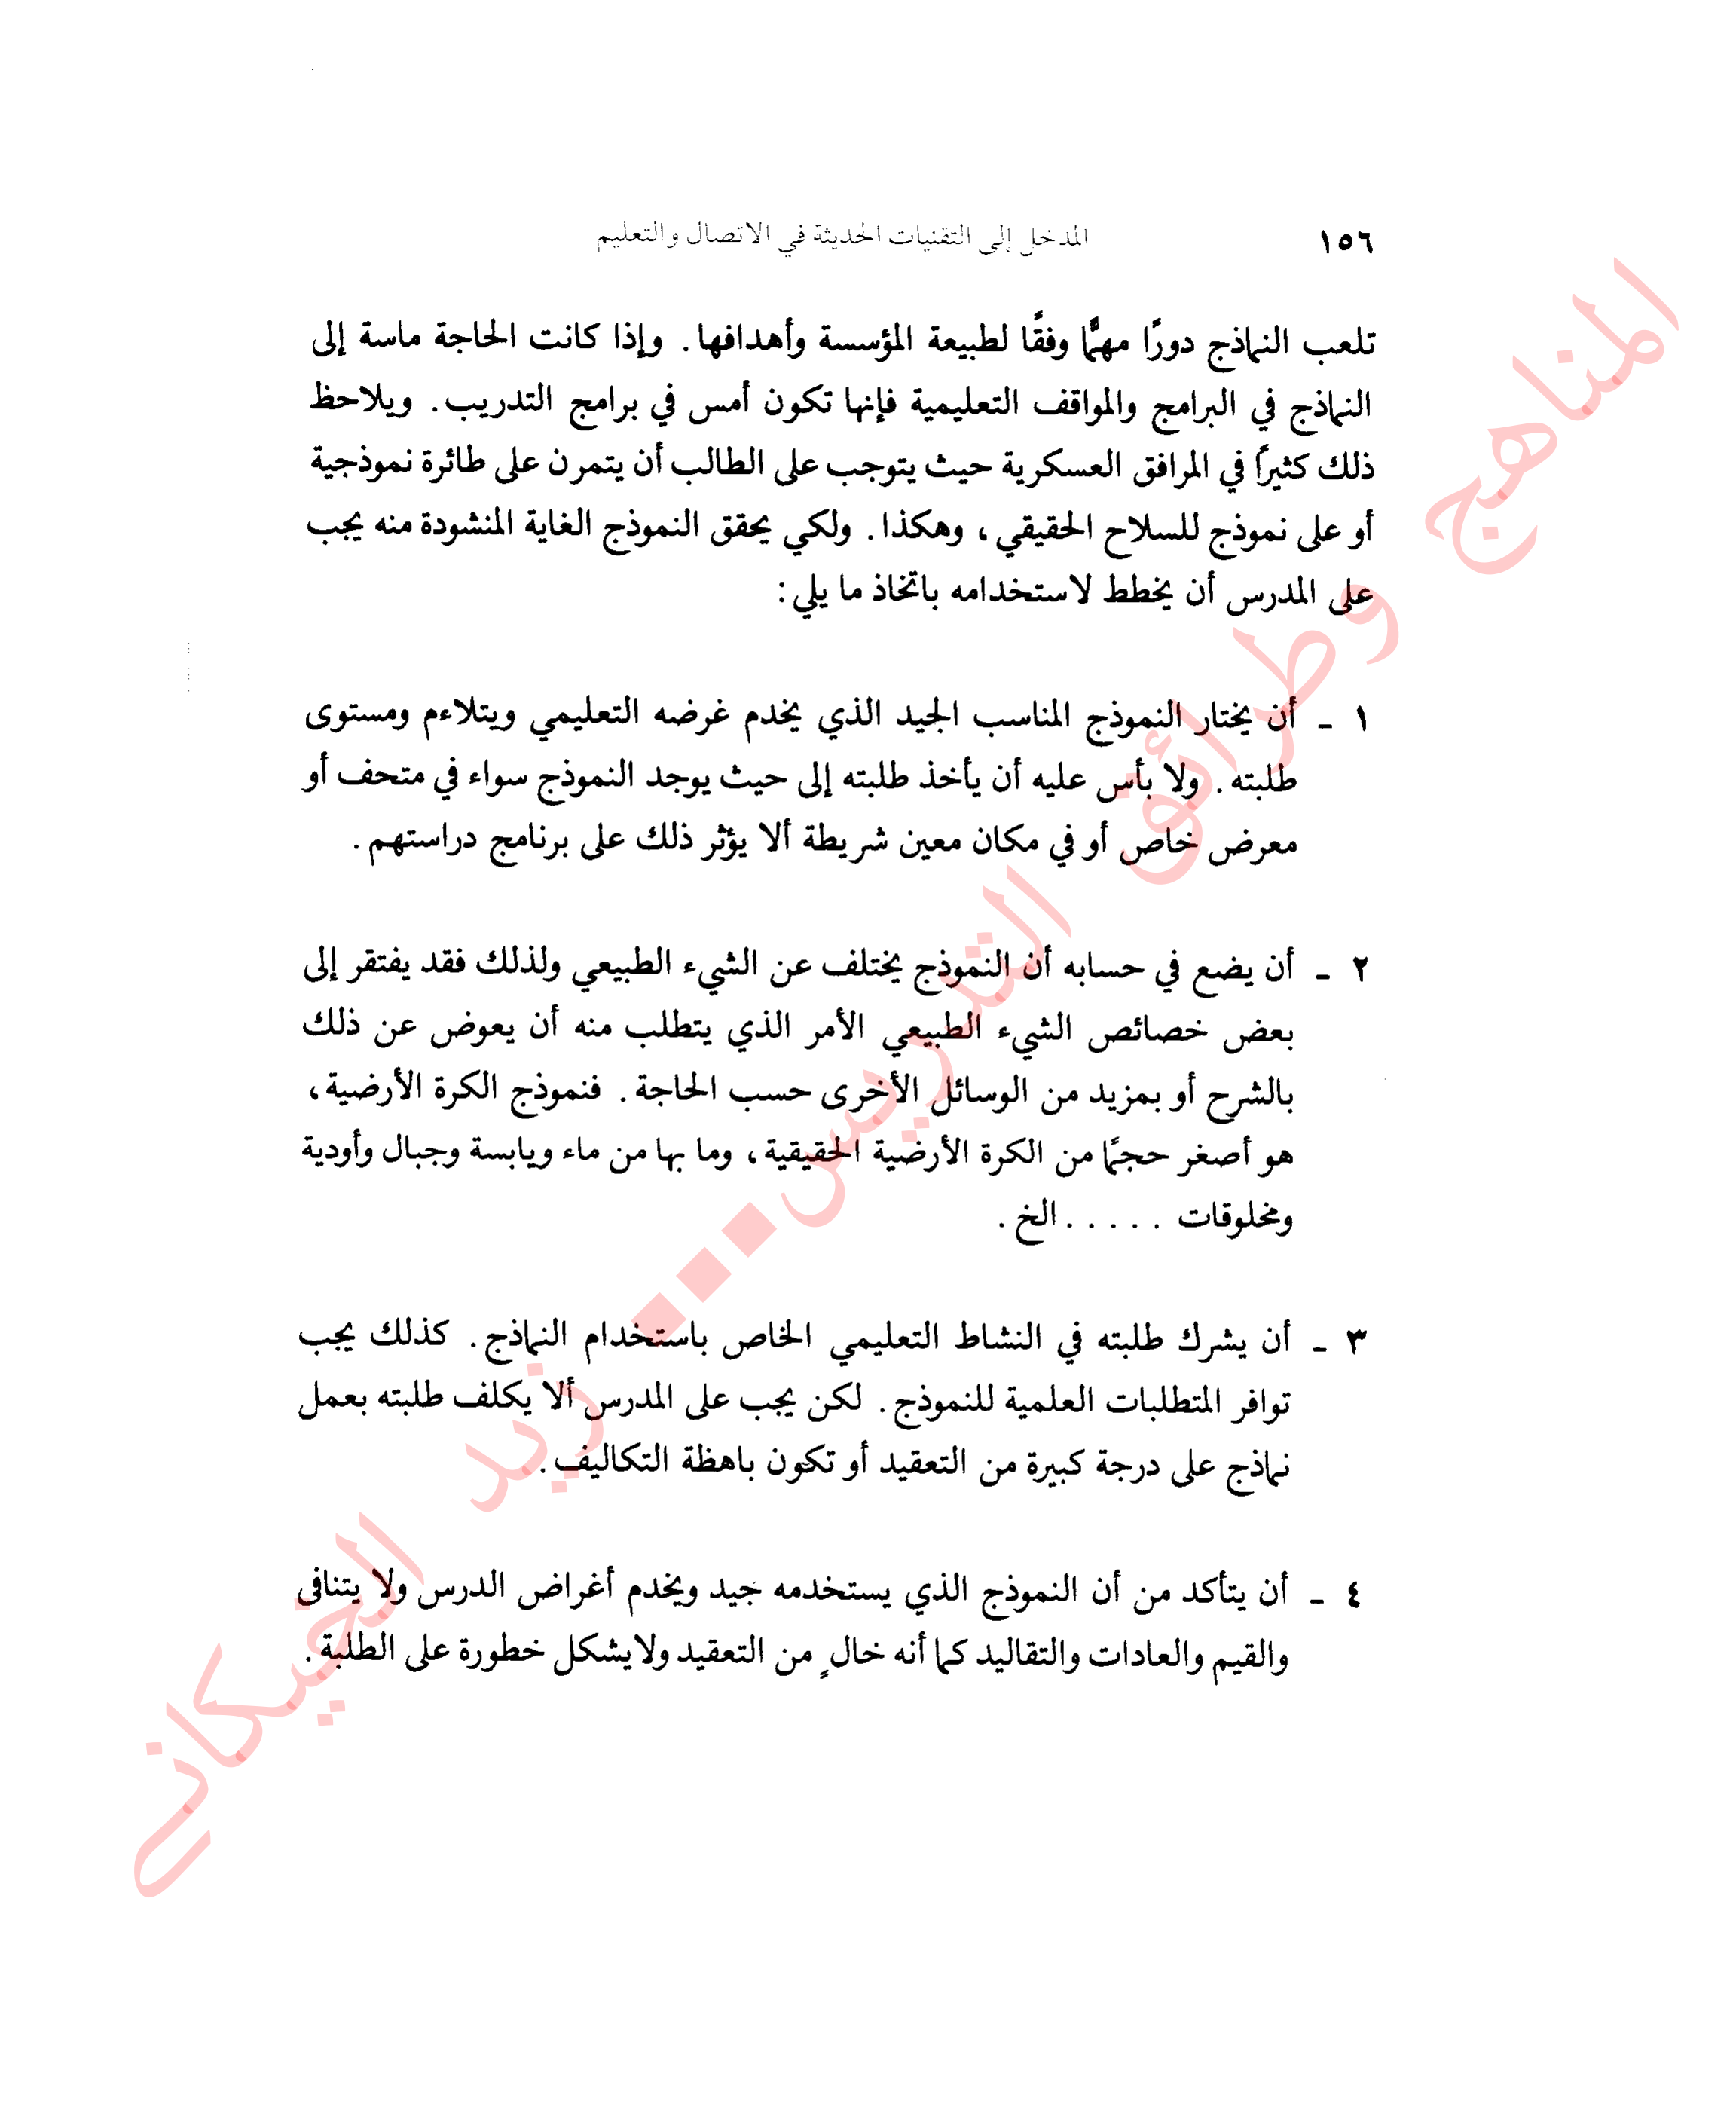 ١٥٦
المدخل إلى التقنيات الحديثة في الاتصال والتعليم
تلعب النماذج دورًا مهمًّا وفقًا لطبيعة المؤسسة وأهدافها. وإذا كانت الحاجة ماسة إلى
النماذج في البرامج والمواقف التعليمية فإنها تكون أمس في برامج التدريب. ويلاحظ
ذلك كثيرًا في المرافق العسكرية حيث يتوجب على الطالب أن يتمرن على طائرة نموذجية
أو على نموذج للسلاح الحقيقي، وهكذا. ولكي يحقق النموذج الغاية المنشودة منه يجب
على المدرس أن يخطط لاستخدامه باتخاذ ما يلي:
١ - أن يختار النموذج المناسب الجيد الذي يخدم غرضه التعليمي ويتلاءم ومستوى
طلبته. ولا بأس عليه أن يأخذ طلبته إلى حيث يوجد النموذج سواء في متحف أو
معرض خاص أو في مكان معين شريطة ألا يؤثر ذلك على برنامج دراستهم.
٢ - أن يضع في حسابه أن النموذج يختلف عن الشيء الطبيعي ولذلك فقد يفتقر إلى
بعض خصائص الشيء الطبيعي الأمر الذي يتطلب منه أن يعوض عن ذلك
بالشرح أو بمزيد من الوسائل الأخرى حسب الحاجة. فنموذج الكرة الأرضية،
هو أصغر حجمًا من الكرة الأرضية الحقيقية، وما بها من ماء ويابسة وجبال وأودية
ومخلوقات . . . . . الخ.
٣ - أن يشرك طلبته في النشاط التعليمي الخاص باستخدام النماذج. كذلك يجب
توافر المتطلبات العلمية للنموذج. لكن يجب على المدرس ألا يكلف طلبته بعمل
نماذج على درجة كبيرة من التعقيد أو تكون باهظة التكاليف.
٤ - أن يتأكد من أن النموذج الذي يستخدمه جيد ويخدم أغراض الدرس ولا يتنافى
والقيم والعادات والتقاليد كما أنه خالٍ من التعقيد ولا يشكل خطورة على الطلبة.
المناهج وطرائق التدريس... زيد الخيكاني